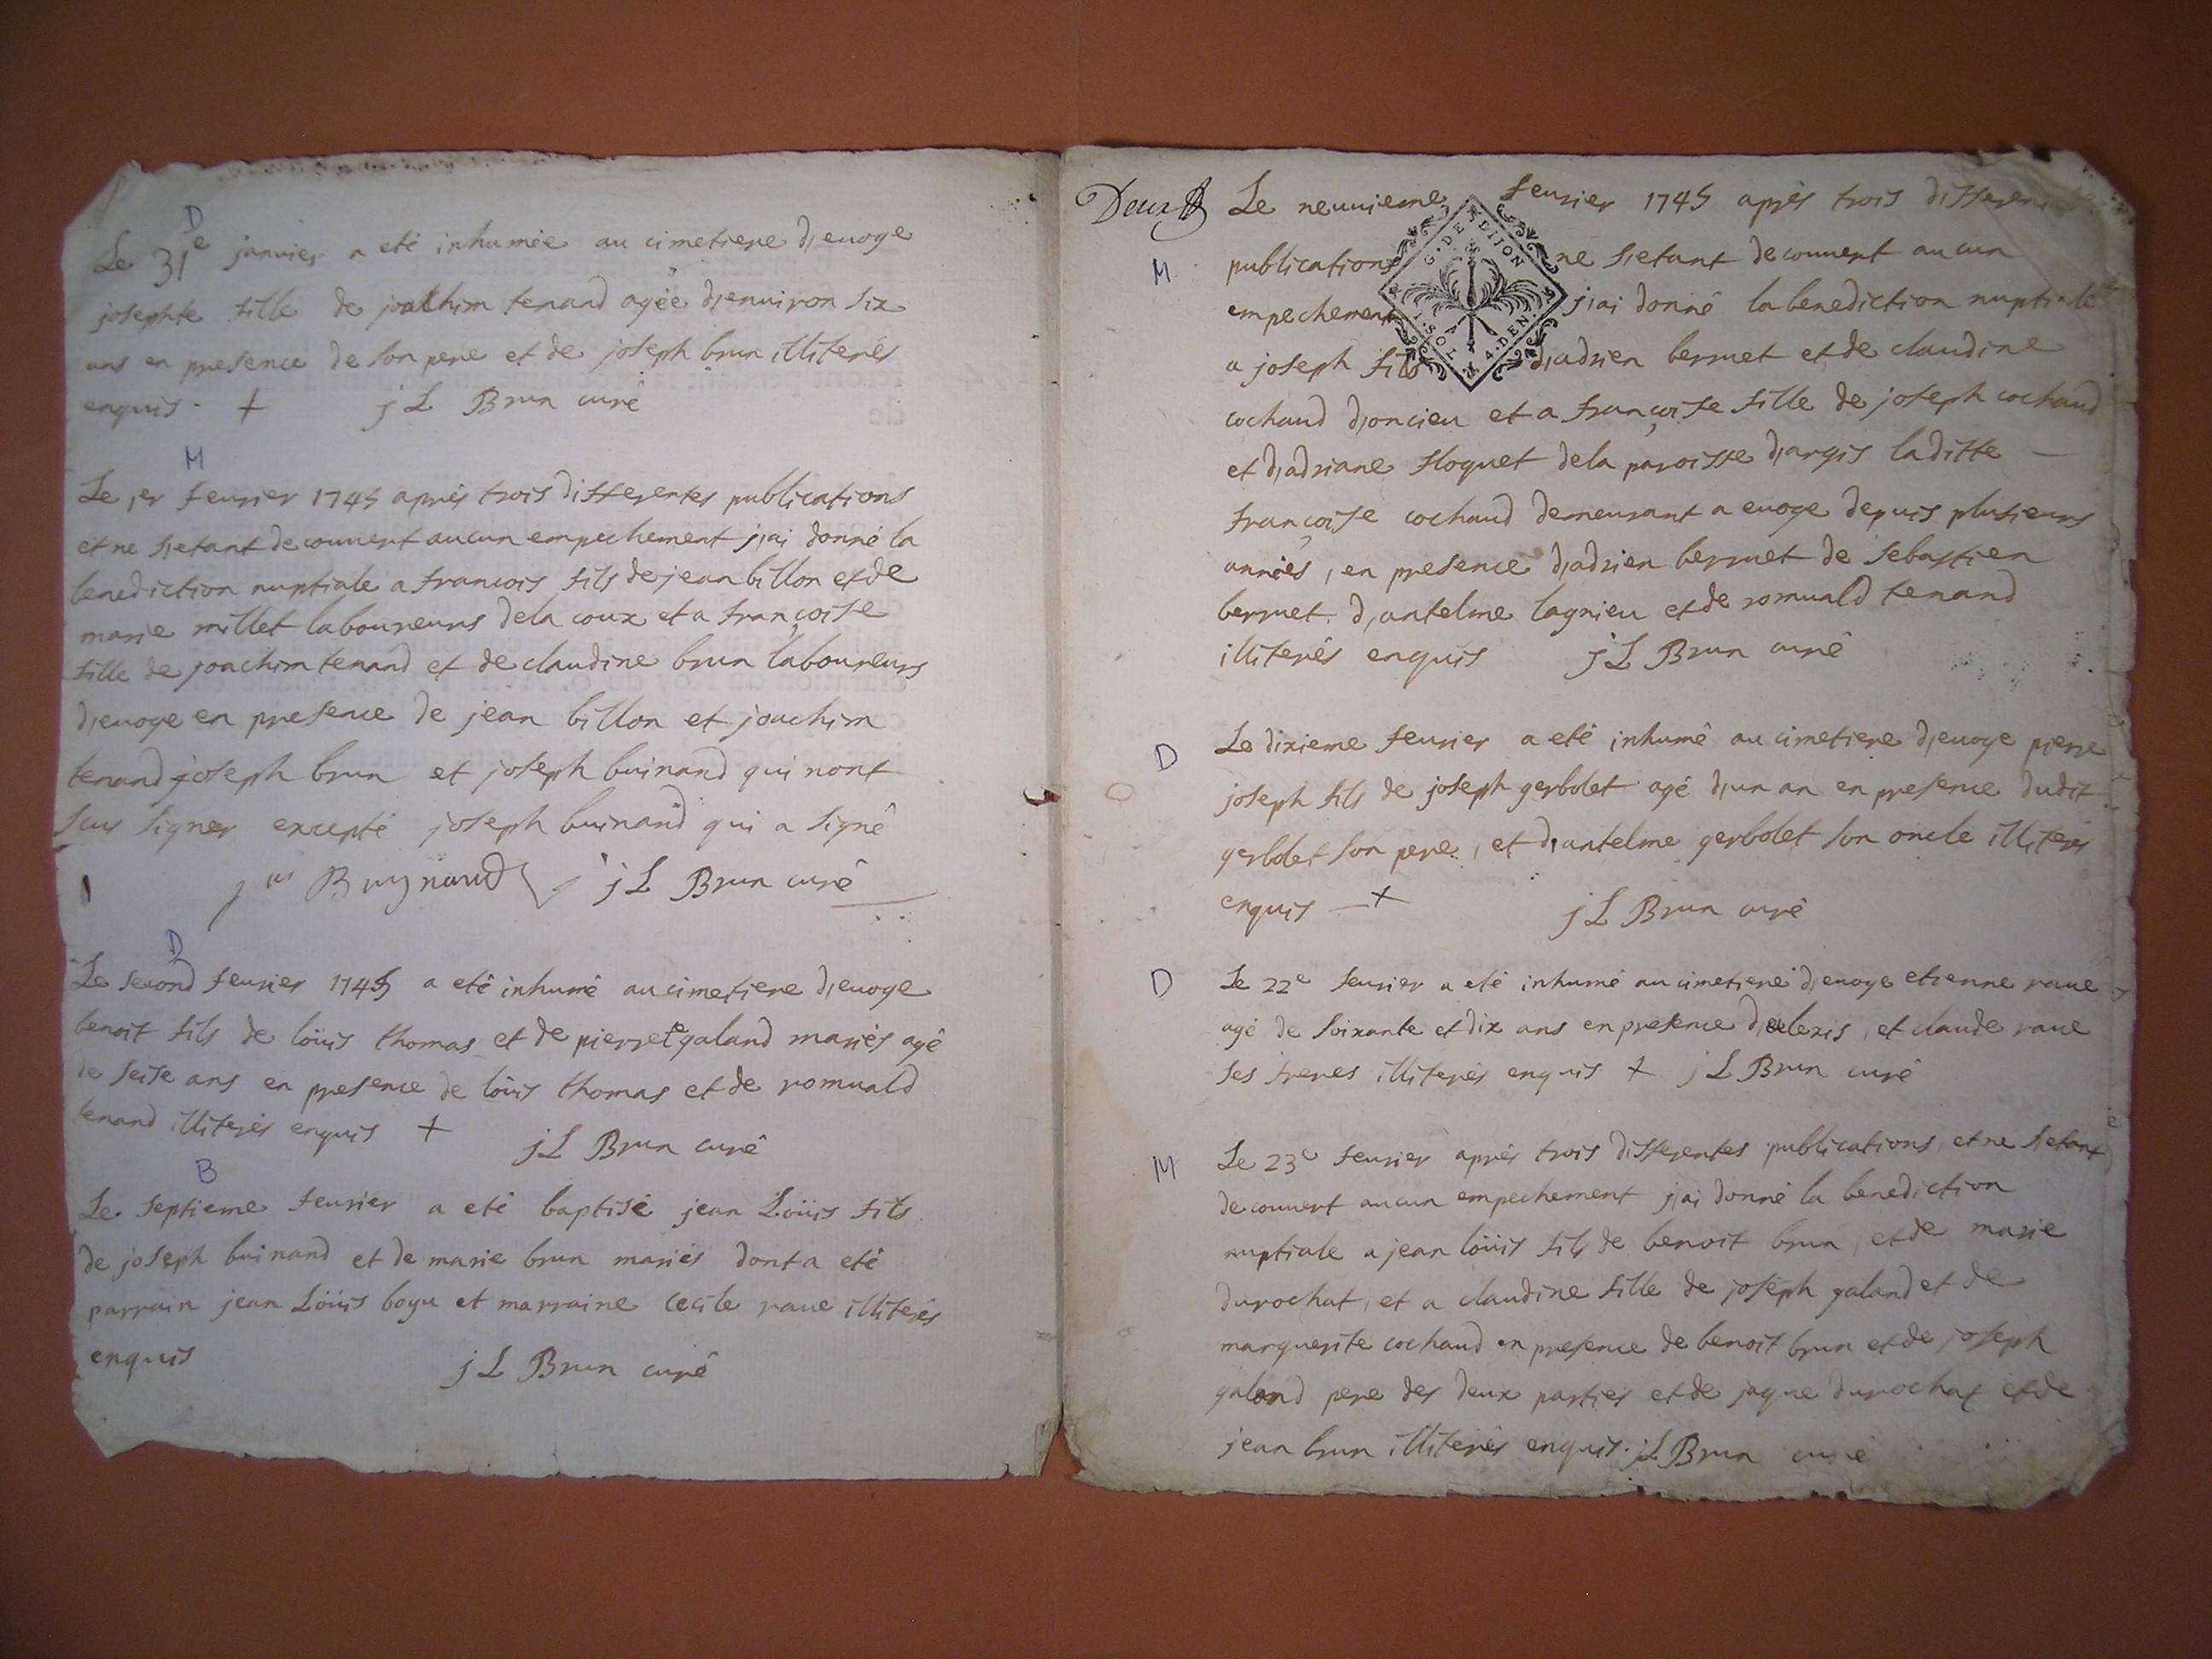 D
Le 31e janvier a eté inhumée au cimetiere d'evoge
josephte fille de joachim tenand agée d'environ six
ans en presence de son pere et de joseph brun illiterés
enquis. + j L Brun curé
M
Le 1er fevrier 1745 aprés trois differentes publications
et ne s'etant decouvert aucun empechement j'ai donné la
benediction nuptiale a francois fils de jean billon et de
marie millet laboureurs de la coux et a françoise
fille de joachim tenand et de claudine brun laboureurs
d'evoge en presence de jean billon et joachim
tenand joseph brun et joseph buinand qui nont
sçus signer excepté joseph buinand qui a signé
Buynand j L Brun curé
D
Le second fevrier 1745 a eté inhumé au cimetiere d'evoge
benoit fils de loüis thomas et de pierrete galand mariés agé
de seise ans en presence de loüis thomas et de romuald
tenand illiterés enquis + j L Brun curé
B
Le septieme fevrier a eté baptisé jean Loüis fils
de joseph buinand et de marie brun mariés dont a eté
parrain jean Loüis boyu et marraine cecile rave illiterés
enquis j L Brun curé
Deux Le neuvieme fevrier 1745 aprés trois
G. DE DIJON
1. SOL. 4. DEN.
M publications ne s'etant decouvert aucun
empechement j'ai donné la benediction nuptiale
a joseph fils d'adrien berruet et de claudine
cochaud d'oncieu et a françoise fille de joseph cochaud
et d'adriane floquet de la paroisse d'argis laditte
françoise cochaud demeurant a evoge depuis plusieurs
années, en presence d'adrien berruet de sebastien
berruet d'antelme lagnieu et de romuald tenand
illiterés enquis j L Brun curé
D Le dixieme fevrier a eté inhumé au cimetiere d'evoge pierre
joseph fils de joseph gerbolet agé d'un an en presence dudit
gerbolet son pere, et d'antelme gerbolet son oncle illiterés
enquis + j L Brun curé
D Le 22e fevrier a eté inhumé au cimetiere d'evoge etienne rave
agé de soixante et dix ans en presence d'alexis, et claude rave
ses freres illiterés enquis + j L Brun curé
M Le 23e fevrier aprés trois differentes publications, et ne s'etant
decouvert aucun empechement j'ai donné la benediction
nuptiale a jean loüis fils de benoit brun, et de marie
durochat, et a claudine fille de joseph galand et de
marguerite cochaud en presence de benoit brun et de joseph
galand pere des deux parties et de jaque durochat et de
jean brun illiterés enquis. j L Brun curé